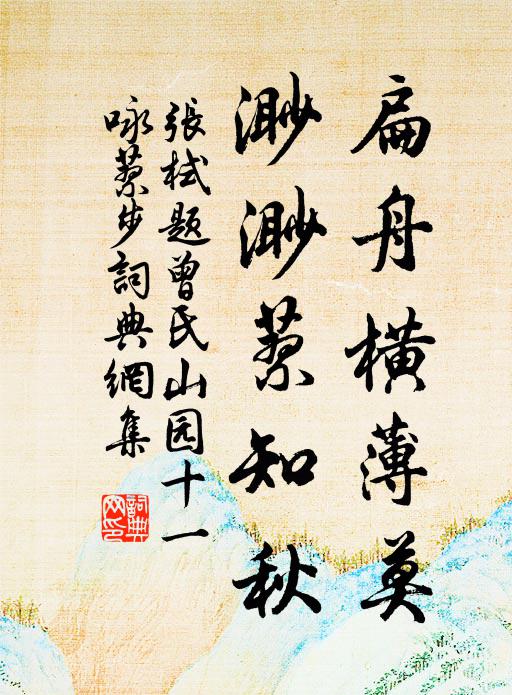 扁舟橫薄莫
渺渺蔡知秋
張栻題曾氏山园十一
咏蔡步詞典網集
詞典
网印